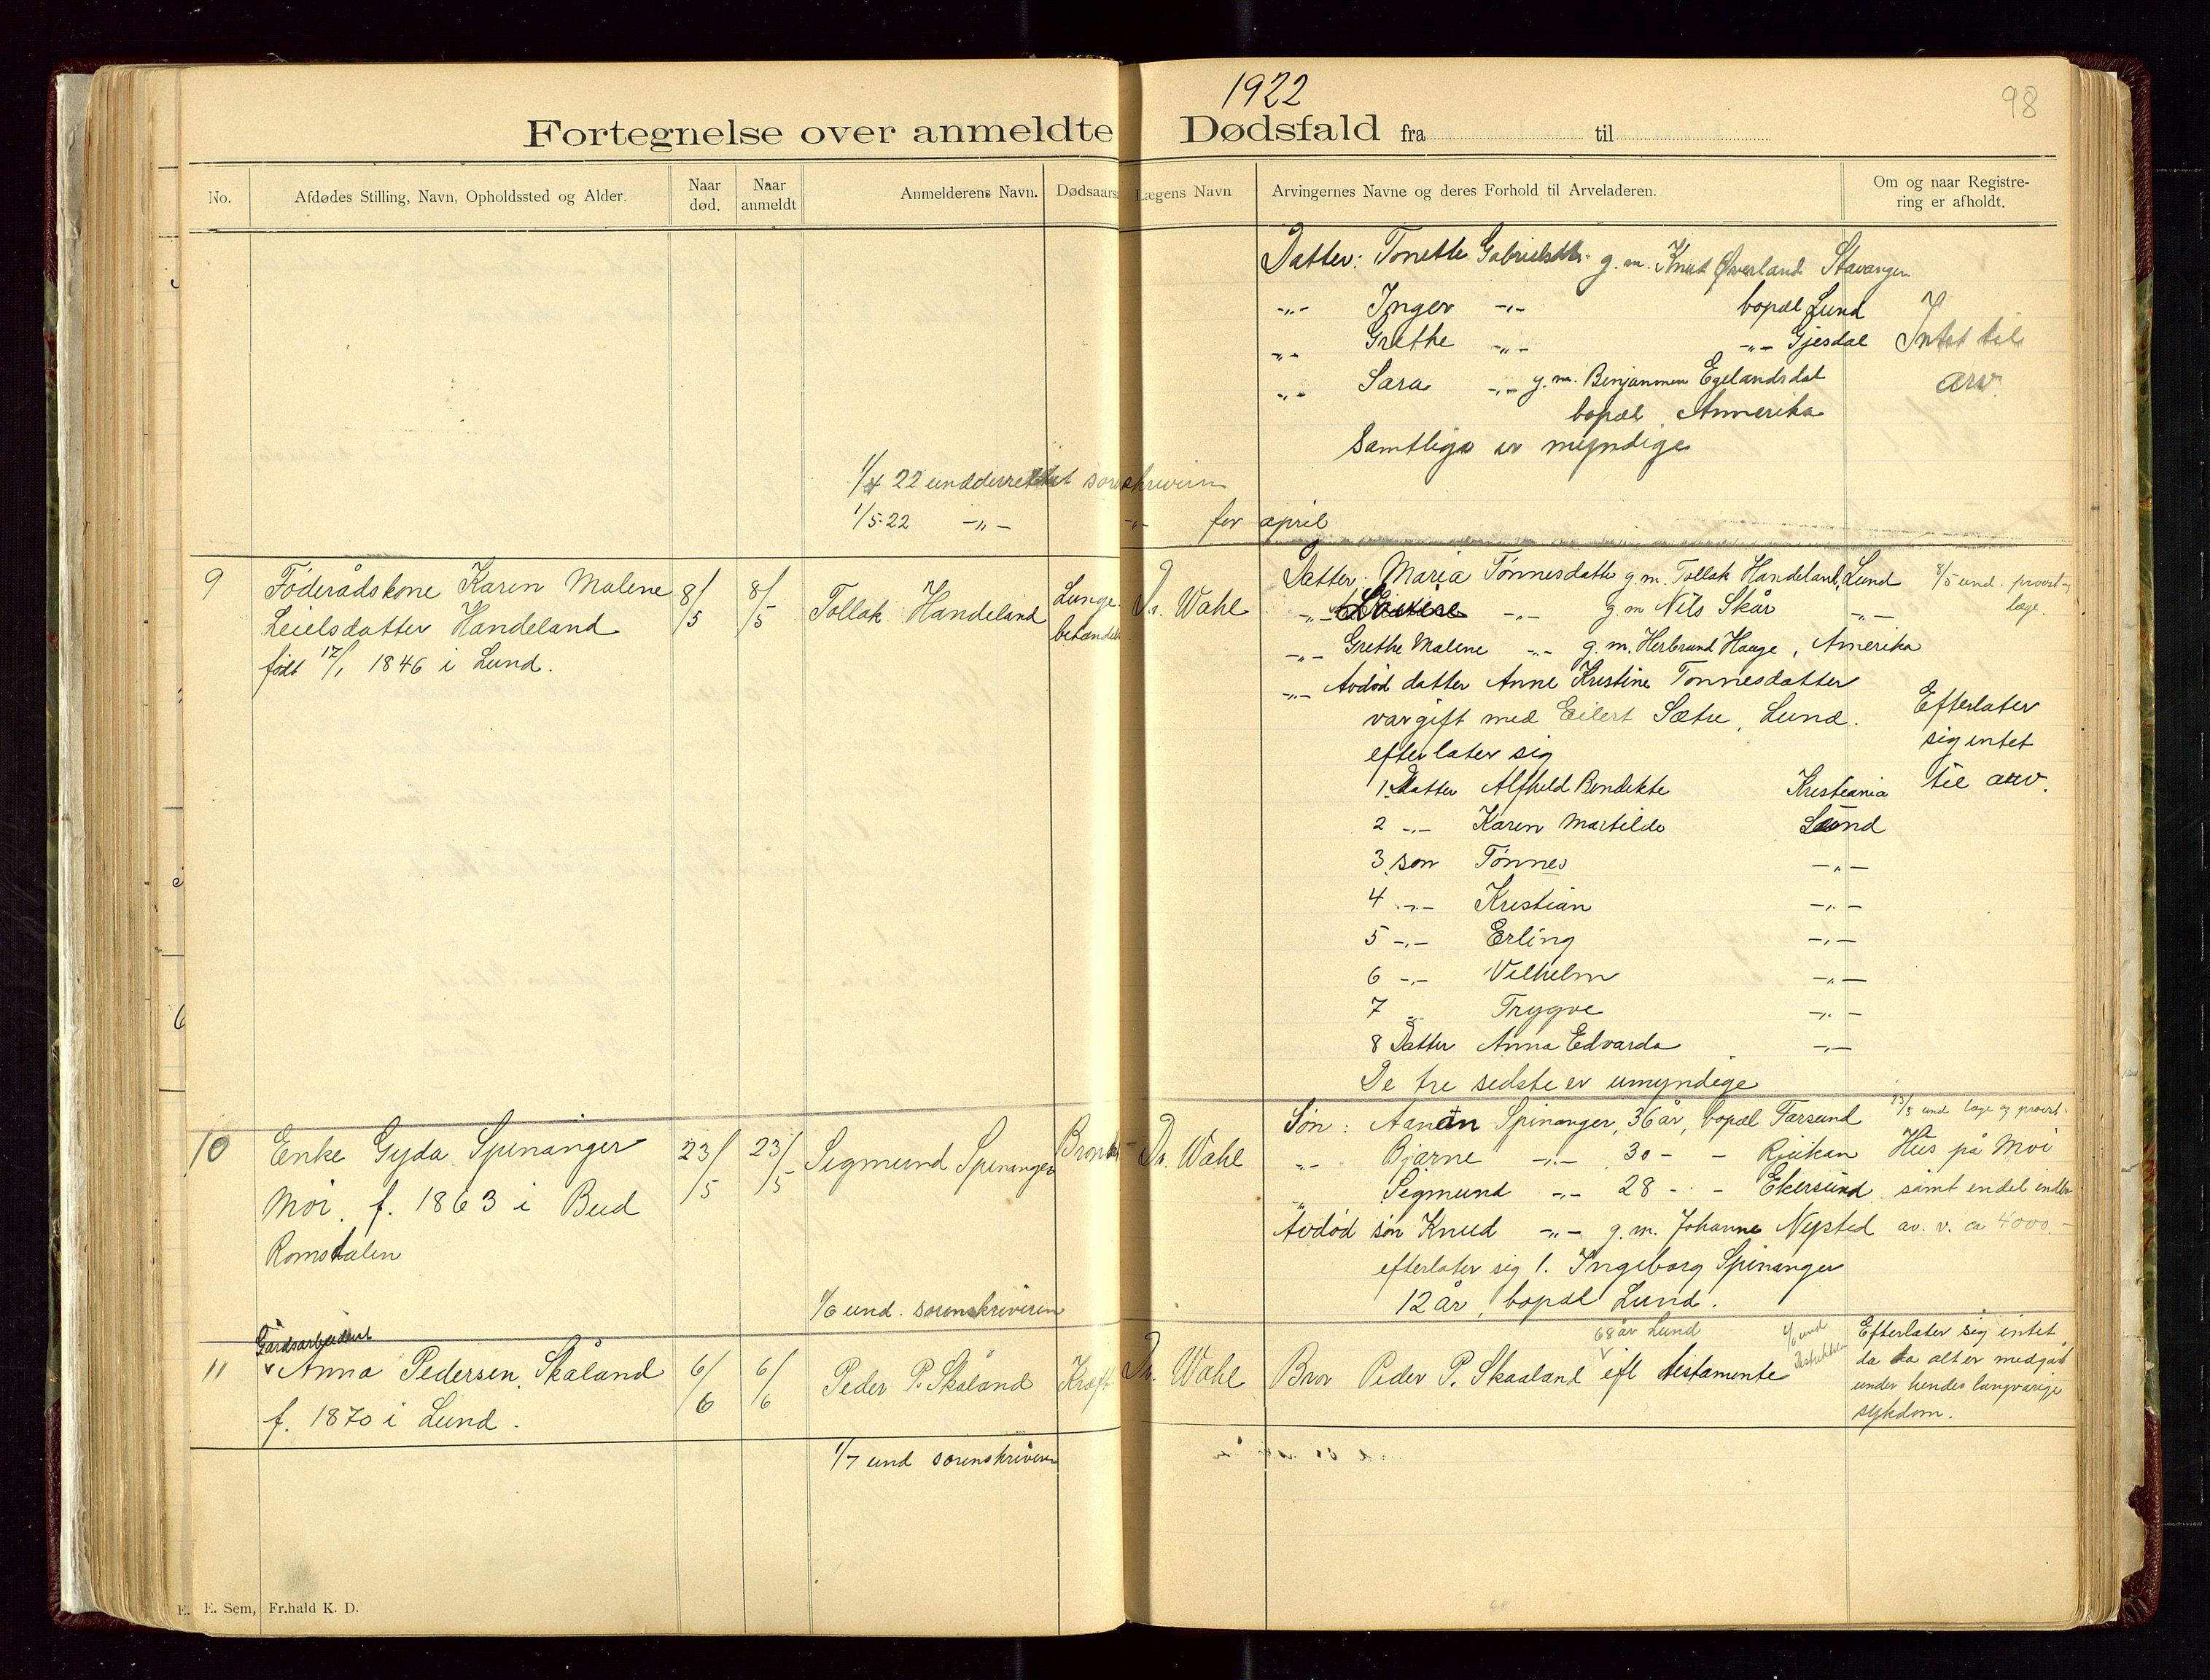 1922
98
Fortegnelse over anmeldte Dødsfald fra til
No.
Afdødes Stilling, Navn, Opholdssted og Alder.
Naar død.
Naar anmeldt
Anmelderens Navn.
Dødsaars
Lægens Navn
Arvingernes Navne og deres Forhold til Arveladeren.
Om og naar Registre-
ring er afholdt.
Datter: Tonette Gabrielsdtr. g. m. Knut Øverland Stavanger
-„- Inger -„- bopæl Lund
-„- Grethe -„- -„- Gjesdal
-„- Sara -„- g.m. Benjammen Egelandsdal
bopæl Amerika
Samtlige er myndige
Intet til
arv
1/4 22 underrettet sorenskriveren
1/5-22 -„- -„- for april
9
Føderådskone Karen Malene
Leielsdatter Handeland
født 17/1 1846 i Lund.
8/5
8/5
Tollak Handeland
Lunge-
betændels
Dr. Wahl
Datter. Maria Tønnesdatter g.m. Tollak Handeland, Lund
-„- -„- g.m Nils Skår -„-
-„- Grethe Malene -„- g.m. Herbrand Hauge, Amerika
-„- Avdød datter Anne Kristine Tønnesdatter
var gift med Eilert Sætre, Lund.
efterlater sig
1. Datter Alfhild Bendikte Kristiania
2 -„- Karen Martilde Lund
3. søn Tønnes -„-
4 -„- Kristian -„-
5 -„- Erling -„-
6 -„- Vilhelm -„-
7 „ Trygve -„-
8 Datter Anna Edvarda -„-
De tre sidste er umyndige
8/5 und. provst-
læge
Efterlater
sig intet
til arv.
10
Enke Gyda Spinanger
Moi. f. 1863 i Bud
Romsdalen
23/5
23/5
Sigmund Spinanger
Bronk
Dr. Wahl
Søn: Spinanger, 36 år, bopæl Farsund
-„- Bjarne -„- 30 - - Rjukan
-„- Sigmund -„- 28 - - Ekersund
Avdød søn Knud -„- g.m. Johanne Nysted
efterlater sig 1. Ingeborg Spinanger
12 år, bopæl Lund.
23/5 und læge og provst.
Hus på Moi
samt endel indbo
av. v. ca 4000.-
1/6 und. sorenskriveren
11
Gårdsarbeiderske
Anna Pedersen Skåland
f. 1870 i Lund.
6/6
6/6
Peder P. Skåland
Kræft
Dr. Wahl
68 år Lund
Bror Peder P. Skaaland efl testamente
6/6 und
Efterlater sig intet,
da alt er medgåt
under hendes langvarige
sykdom.
1/7 und sorenskriveren
E. E. Sem, Fr.hald K. D.